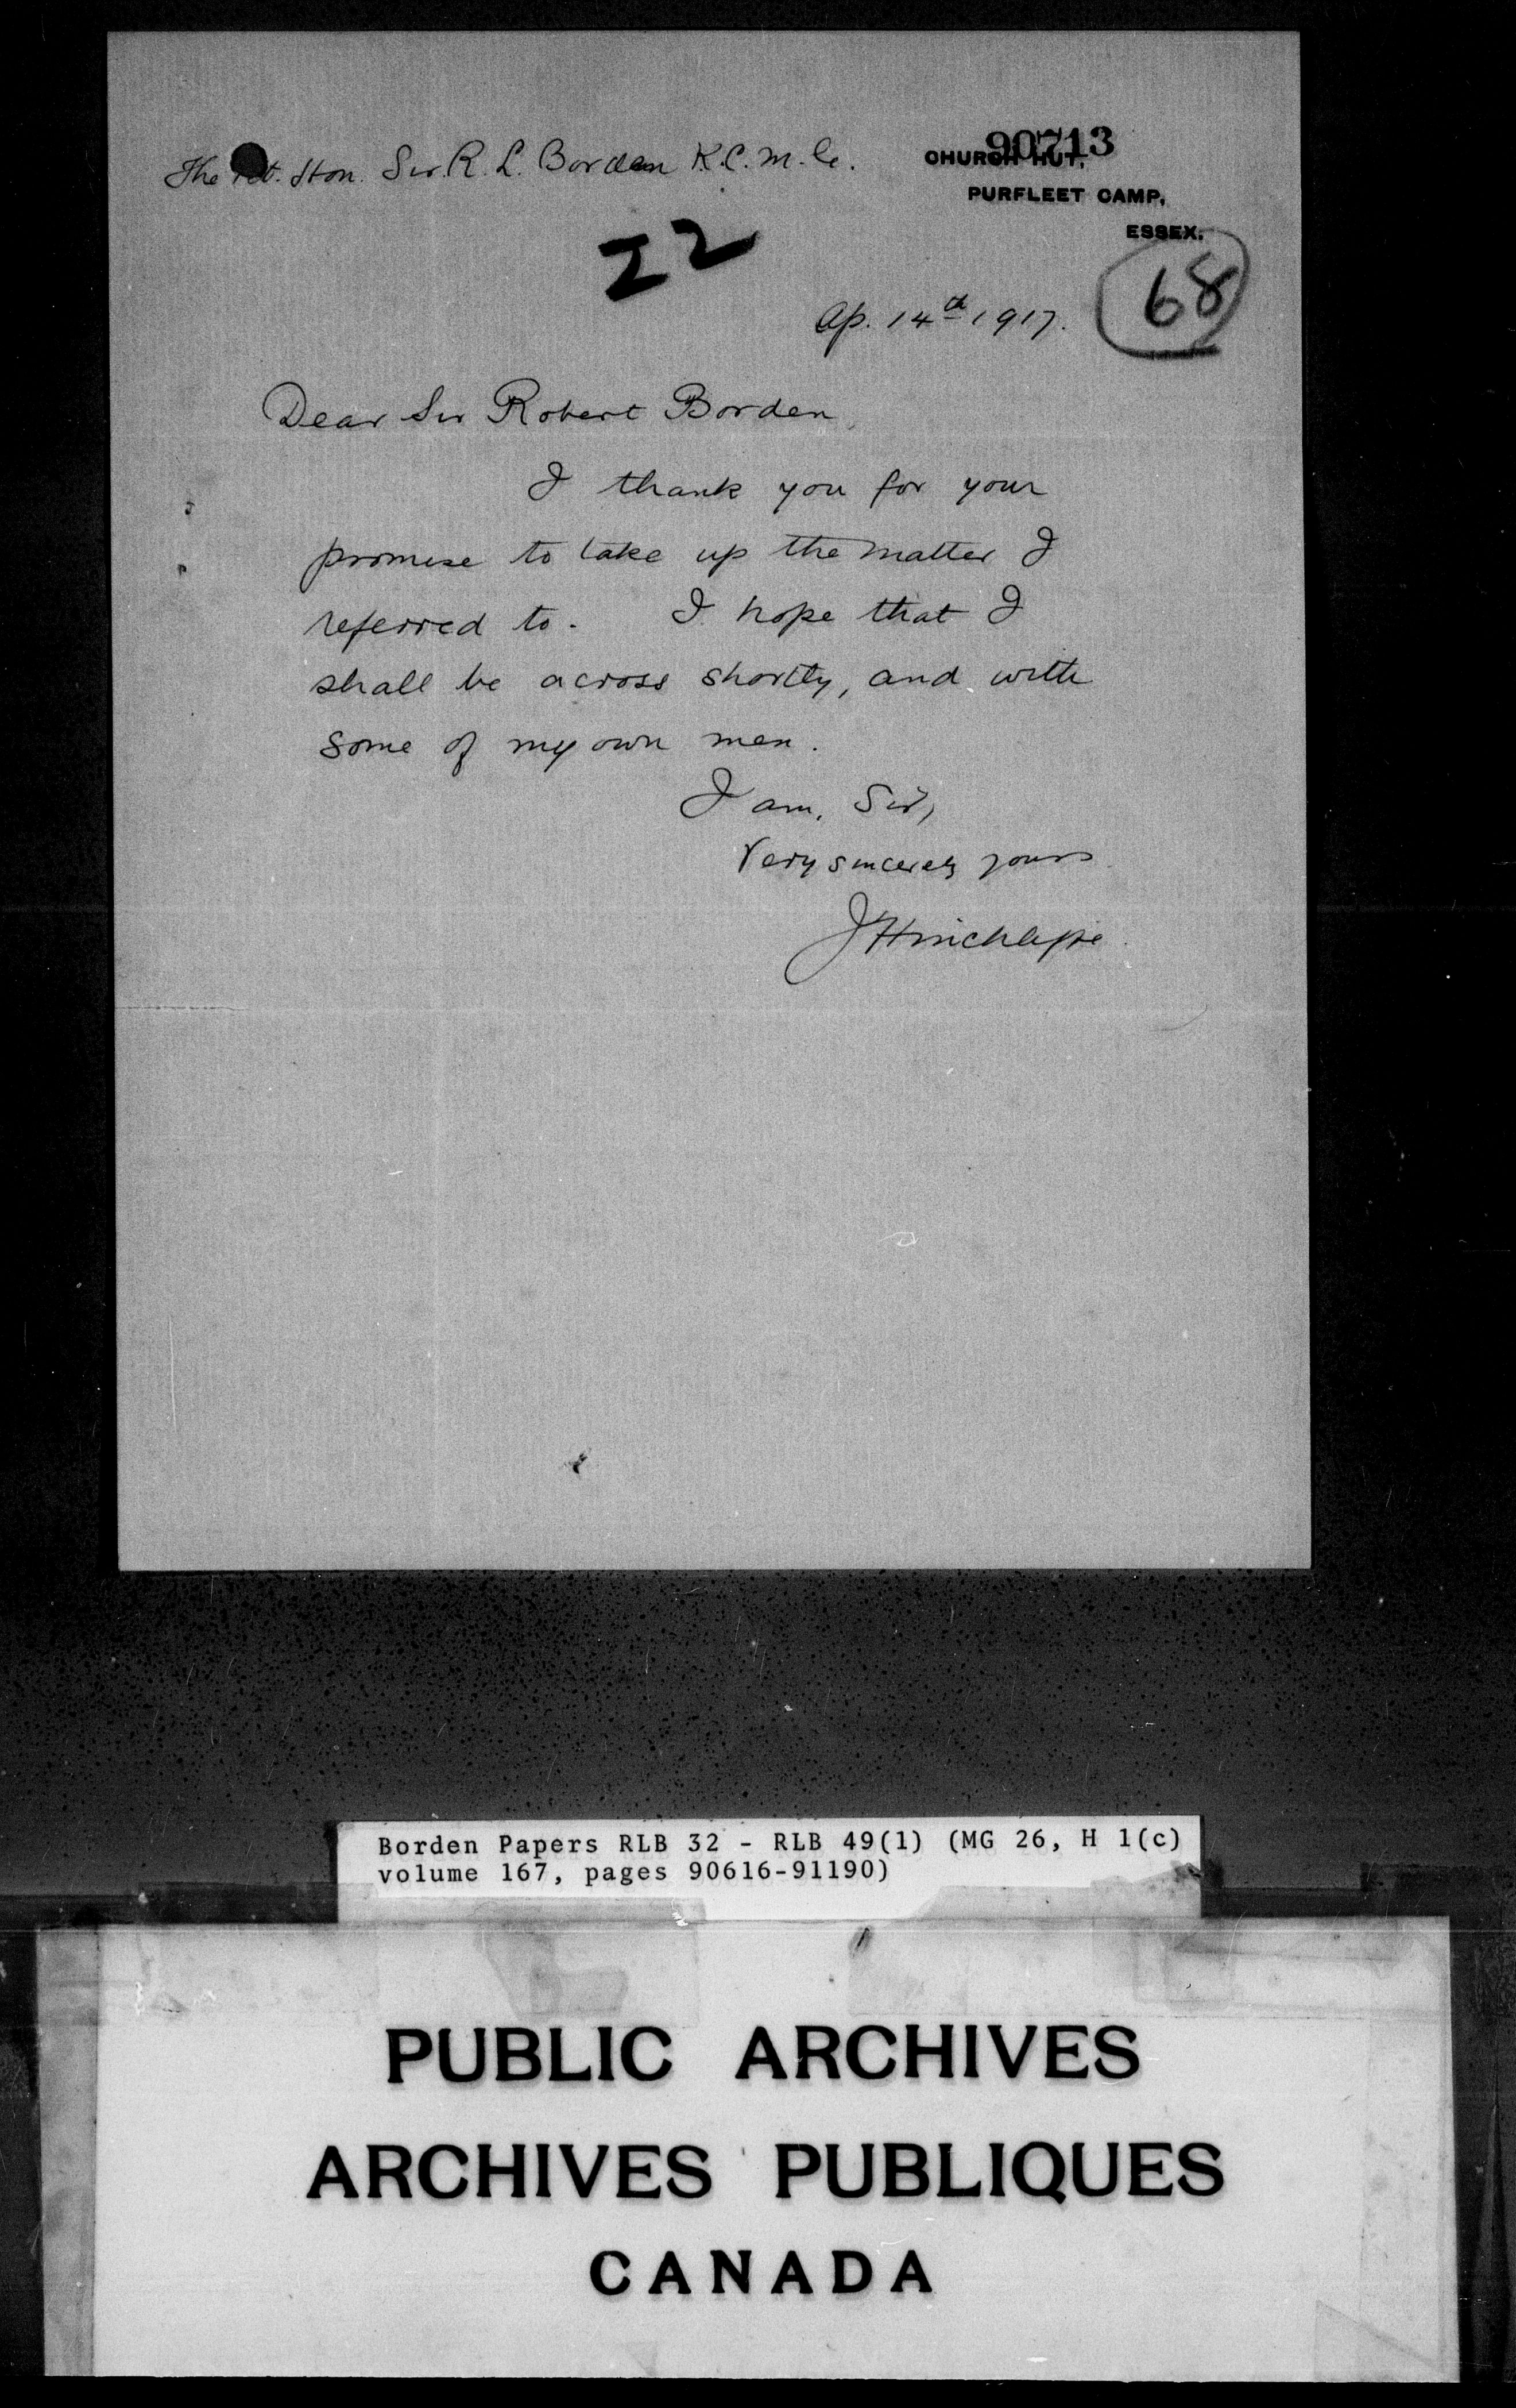 90713
The Rt. Hon. Sir. R. L. Borden K.C.M.G.
CHURCH HUT,
PURFLEET CAMP,
ESSEX.
22
68
Ap. 14th 1917.
Dear Sir Robert Borden,
I thank you for your
promise to take up the matter I
referred to. I hope that I
shall be across shortly, and with
some of my own men.
I am, Sir,
Very sincerely yours
J Hinchliffe.
Borden Papers RLB 32 - RLB 49(1) (MG 26, H 1(c)
volume 167, pages 90616-91190)
PUBLIC ARCHIVES
ARCHIVES PUBLIQUES
CANADA